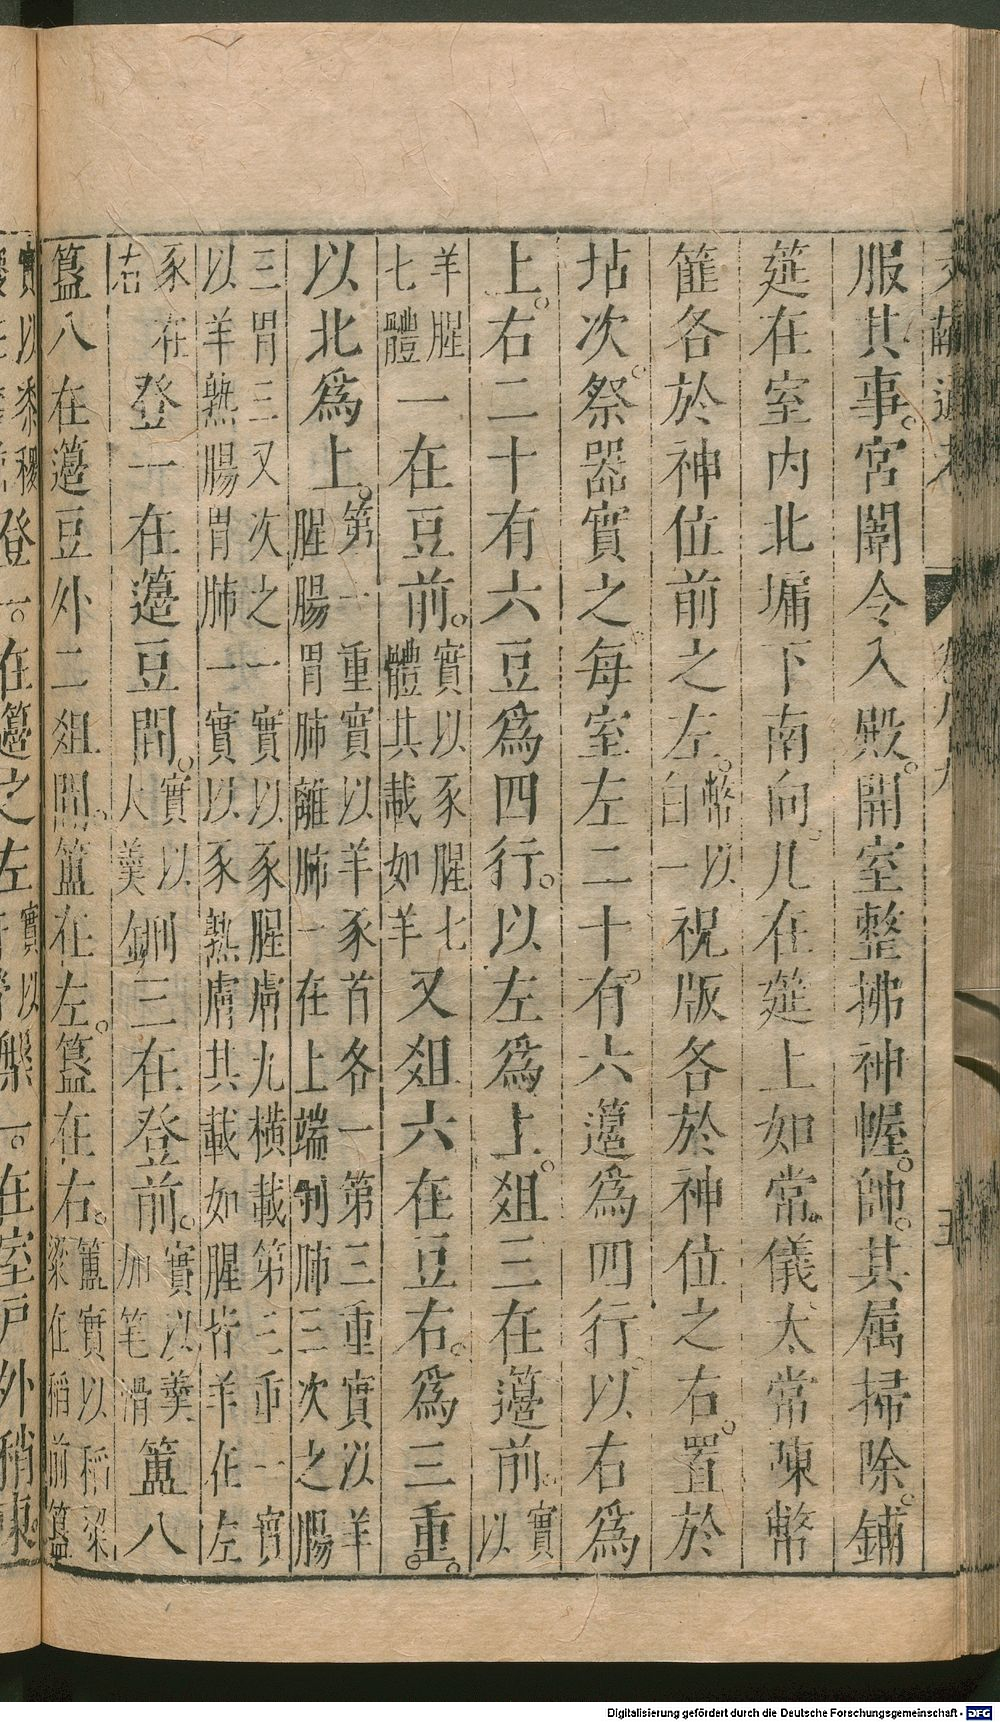 文獻通考 卷九九 五
服其事。宮闈令入殿。開室整拂神幄。帥。其屬掃除。鋪
筵在室内北墉下南向。几在筵上如常。儀太常陳幣
篚各於神位前之左。幣以白一祝版各於神位之右。置於
坫次。祭器實之。每室左二十有。六籩爲四行。以右爲
上。右二十有六豆爲四行。以左爲上。爼三在籩前。實以
羊腥七體一在豆前。實以豕腥七體其載如羊又爼六在豆右。爲三重。。
以北爲上。第一重實以羊豕首各一第二重實以羊腥腸胃肺離肺一在上端刌肺三次之腸
三胃三又次之一實以豕腥膚九横載第三重一實以羊熟腸胃肺一實以豕熟膚其載如腥皆羊在左
豕在右登一在籩豆間。實以大羹鉶三在登前。實以羹加芼滑簠八
簋八在籩豆外二爼間。簠在左。簋在右。簠實以稻粱粱在稻前簋
實以黍稷稷在黍前登一。在籩之左實以膋槃一。在室戸外稍東。
Digitalisierung gefördert durch die Deutsche Forschungsgemeinschaft - DFG